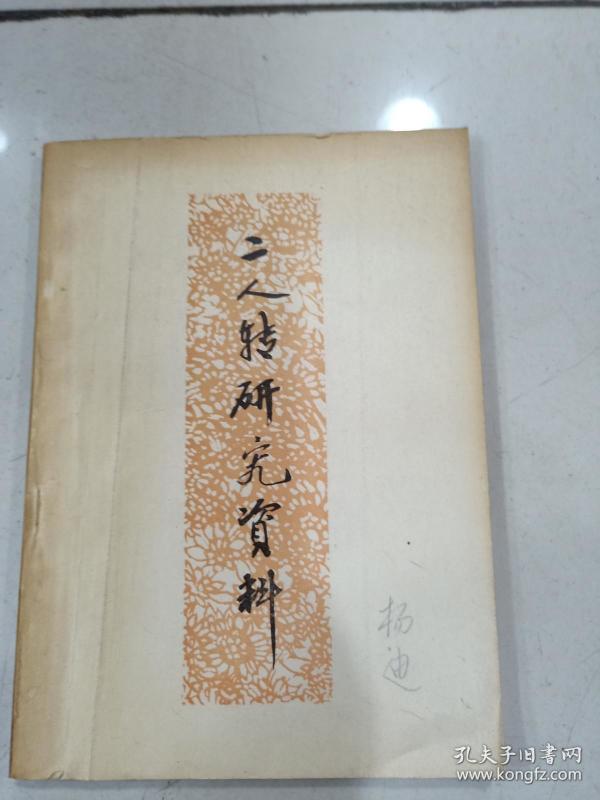 二人转研究資料
杨迪
孔夫子旧書网
www.kongfz.com